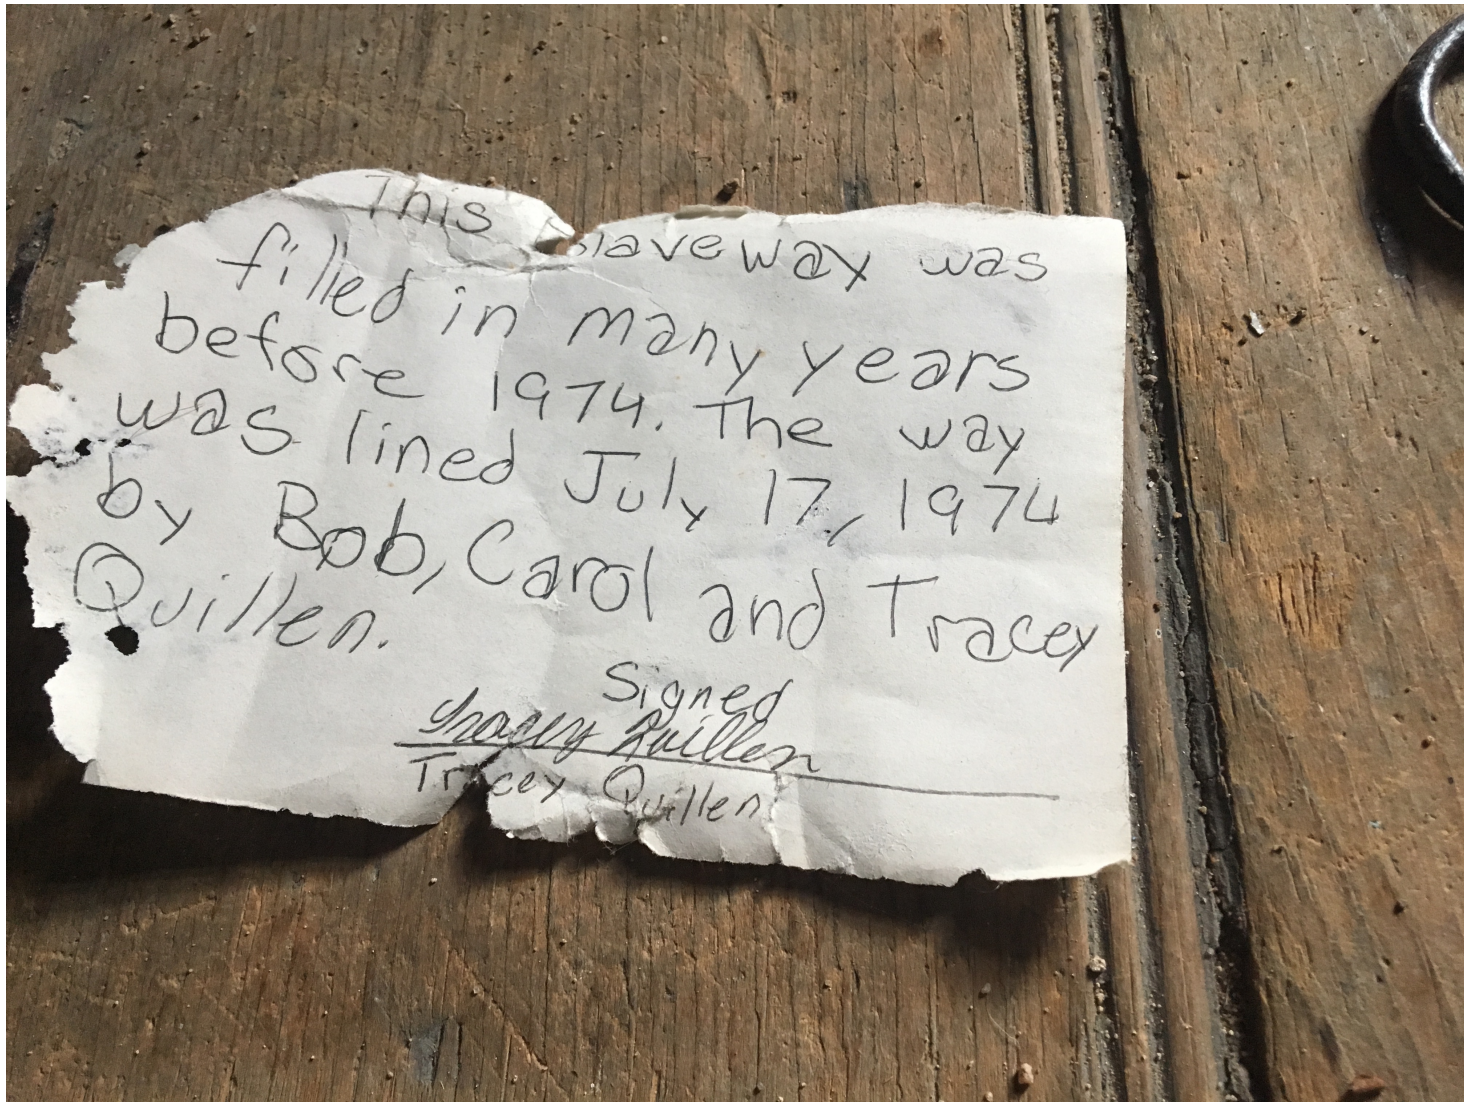 This slaveway was
filled in many years
before 1974. The way
was lined July 17, 1974
by Bob, Carol and Tracey
Quillen.
Signed
Tracey Quillen
Tracey Quillen